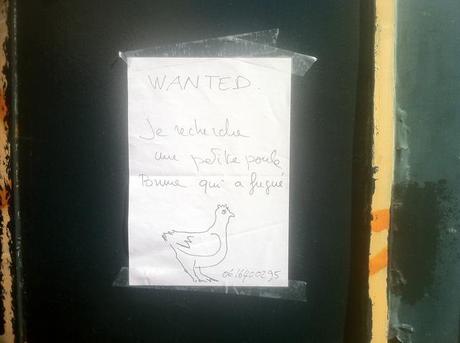 WANTED.
Je recherche
une petite poule
Brune qui a fugué
0616400295